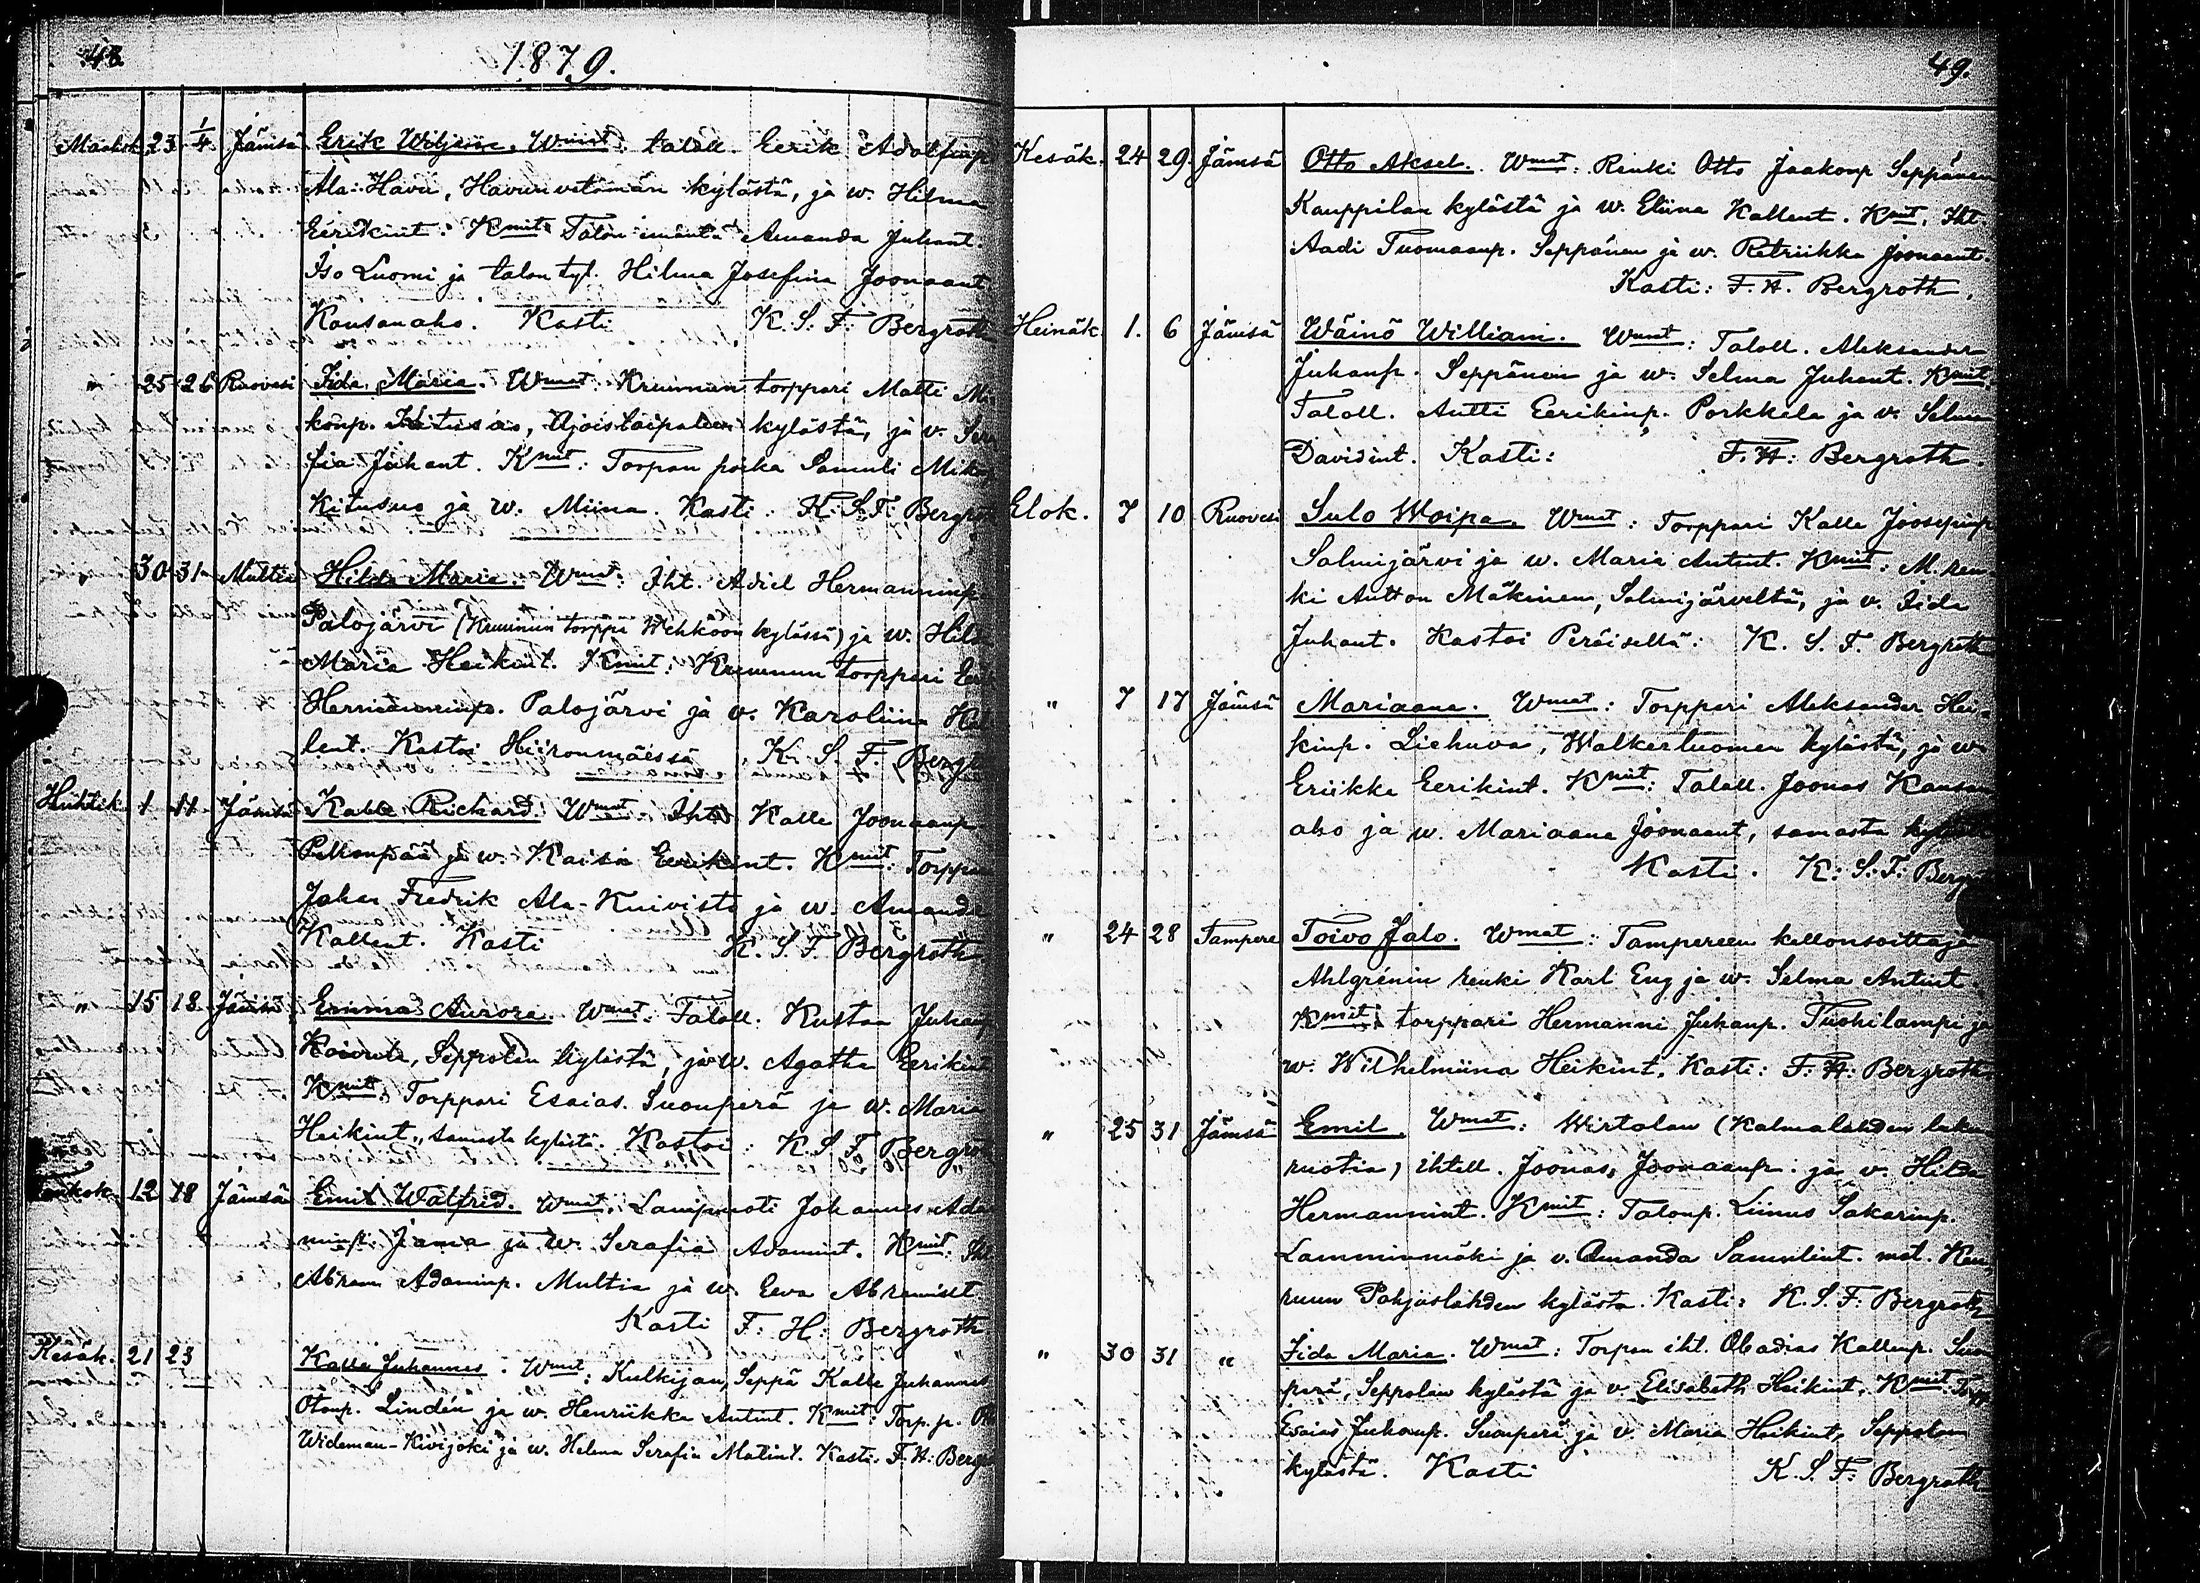 48.
1879.
Maalisk. 23 1/4 Jämsä Erik Wiljam. Wmat: taloll. Eerik Adolfinp.
Ala-Havu, Havunvetämän kylästä, ja w. Hilma
Eerikint. Kmit: Talon emäntä Amanda Juhant.
Iso Luomi ja talon tyt. Hilma Josefina Joonaant
Kansanaho. Kasti K. S. F. Bergroth
" 25 26 Ruovesi Iida Maria. Wmat: Kruunun torppari Matti Mi-
konp. Kitusuo, kylästä, ja v. Sera
fia Juhant. Kmit: Torpan poika Samuli Mikonp
Kitusuo ja w. Miina. Kasti: K. S. F. Bergroth
30 31 Multia Hilda Maria. Wmat: Iht. Adiel Hermanninp.
Palojärvi (Kruunun torppa kylässä) ja w. Hilda
Maria Heikint. Kmit: Kruunun torppari Eerik
Hermanninp. Palojärvi ja v. Karoliina Kal
lent. Kastoi Hiironmäessä K. S. F. Bergroth
Huhtik 1 11 Jämsä Kalle Rickard. Wmat: Iht. Kalle Joonaanp
ja w. Kaisa Eerikint. Kmit: Torppari
Fredrik Ala-Kuivisto ja w. Amanda
Kallent. Kasti K. S. F. Bergroth
" 15 18 Jämsä Emma Aurora. Wmat: Taloll. Kustaa Juhanp
Seppolan kylästä, ja w. Agatha Eerikint
Kmit: Torppari Esaias Suonperä ja w. Maria
Heikint., samasta kylästä. Kastoi: K. S. F. Bergroth
Toukok. 12 18 Jämsä Emil Walfrid. Wmat: Johannes Ada
minp. Jama ja w. Serafia Adamint. Kmit: Iht
Abram Adaminp. Multia ja w. Eeva Abramint
Kasti F. H. Bergroth
Kesäk. 21 23 Kalle Juhannes. Wmat: Kulkijan, Seppä Kalle Juhannes
Otonp. Lindén ja w. Henriikka Antint. Kmit: Torp. p.
Wideman-Kivijoki ja w. Helena Serafia Matint. Kasti. F. H. Bergroth
49.
Kesäk. 24 29 Jämsä Otto Aksel. Wmat: Renki Otto Jaakonp Seppänen
Kauppilan kylästä ja w. Eliina Kallent. Kmit. Iht
Aadi Tuomaanp. Seppänen ja w. Retriikka Joonaant.
Kasti: F. H. Bergroth.
Heinäk. 1. 6 Jämsä Wäinö William. Wmat: Taloll. Aleksander
Juhanp. Seppänen ja w. Selma Juhant. Kmit.
Taloll. Antti Eerikinp. Porkkela ja v. Selma
Davidint. Kasti: F. H. Bergroth.
Elok. 7 10 Ruovesi Sulo Woipa. Wmat: Torppari Kalle Joosepinp
Salmijärvi ja w. Maria Antint. Kmit: M. ren-
ki Antton Mäkinen, Salmijärveltä, ja v. Iida
Juhant. Kastoi Peräisellä: K. S. F. Bergroth
" 7 17 Jämsä Mariaana. Wmat: Torppari Aleksander Hei-
kinp. Liehuva, Walkerluomen kylästä, ja w
Eriikka Eerikint. Kmit: Taloll. Joonas Kansan
aho ja w. Mariaana Joonaant, samasta kylästä
Kasti. K. S. F. Bergroth
" 24 28 Tampere Toivo Jalo. Wmat: Tampereen kellonsoittaja
Ahlgrénin renki Karl Eng ja w. Selma Antint.
Kmit: torppari Hermanni Juhanp. Tuohilampi ja
w. Wilhelmiina Heikint. Kasti: F. H. Bergroth
" 25 31 Jämsä Emil. Wmat: Wirtolan (Kalmalahden laka
ruotia) ihtell. Joonas Joonaanp. ja v. Hilda
Hermannint. Kmit: Talonp. Liinus Sakarinp.
Lamminmäki ja v. Amanda Samulint. mol. Keu
ruun Pohjaslahden kylästä. Kasti: K. S. F. Bergroth
" 30 31 " Iida Maria. Wmat: Torpan iht. Obadias Kallenp. Suon
perä, Seppolan kylästä ja v. Elisabeth Heikint. Kmit. Torpp
Esaias Juhanp. Suonperä ja v. Maria Heikint, Seppolan
kylästä. Kasti K. S. F. Bergroth